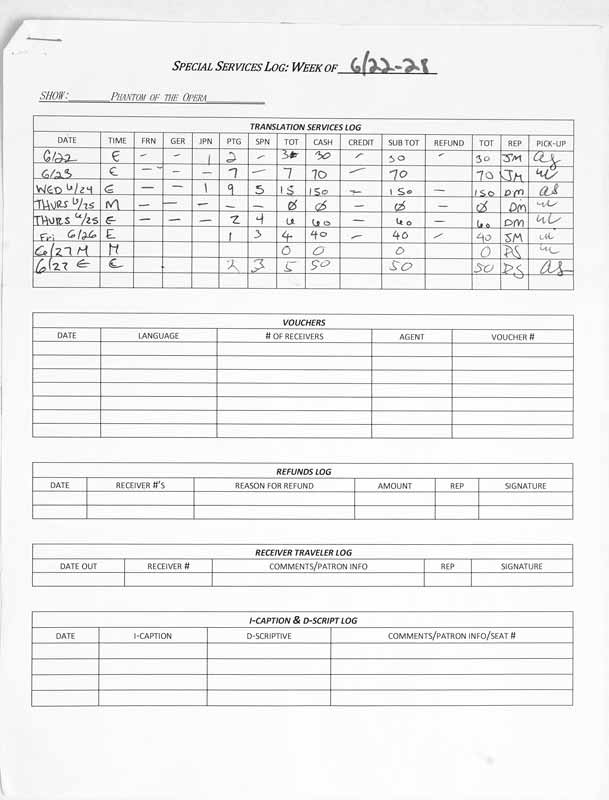 SPECIAL SERVICES LOG: WEEK OF 6/22-28
SHOW: PHANTOM OF THE OPERA
TRANSLATION SERVICES LOG
DATE TIME FRN GER JPN PTG SPN TOT CASH CREDIT SUB TOT REFUND TOT REP PICK-UP
6/22 E - - 1 2 - 3 30 - 30 - 30 JM
6/23 E - - - 7 - 7 70 - 70 70 JM
WED 6/24 E - - 1 9 5 15 150 - 150 - 150 DM
THURS 6/25 M - - - - - Ø Ø - Ø - Ø DM
THURS 6/25 E - - - 2 4 6 60 - 60 - 60 DM
Fri 6/26 E 1 3 4 40 - 40 - 40 JM
6/27 M M 0 0 0 0 DS
6/27 E E 2 3 5 50 50 50 DS
VOUCHERS
DATE LANGUAGE # OF RECEIVERS AGENT VOUCHER #
REFUNDS LOG
DATE RECEIVER #'S REASON FOR REFUND AMOUNT REP SIGNATURE
RECEIVER TRAVELER LOG
DATE OUT RECEIVER # COMMENTS/PATRON INFO REP SIGNATURE
I-CAPTION & D-SCRIPT LOG
DATE I-CAPTION D-SCRIPTIVE COMMENTS/PATRON INFO/SEAT #